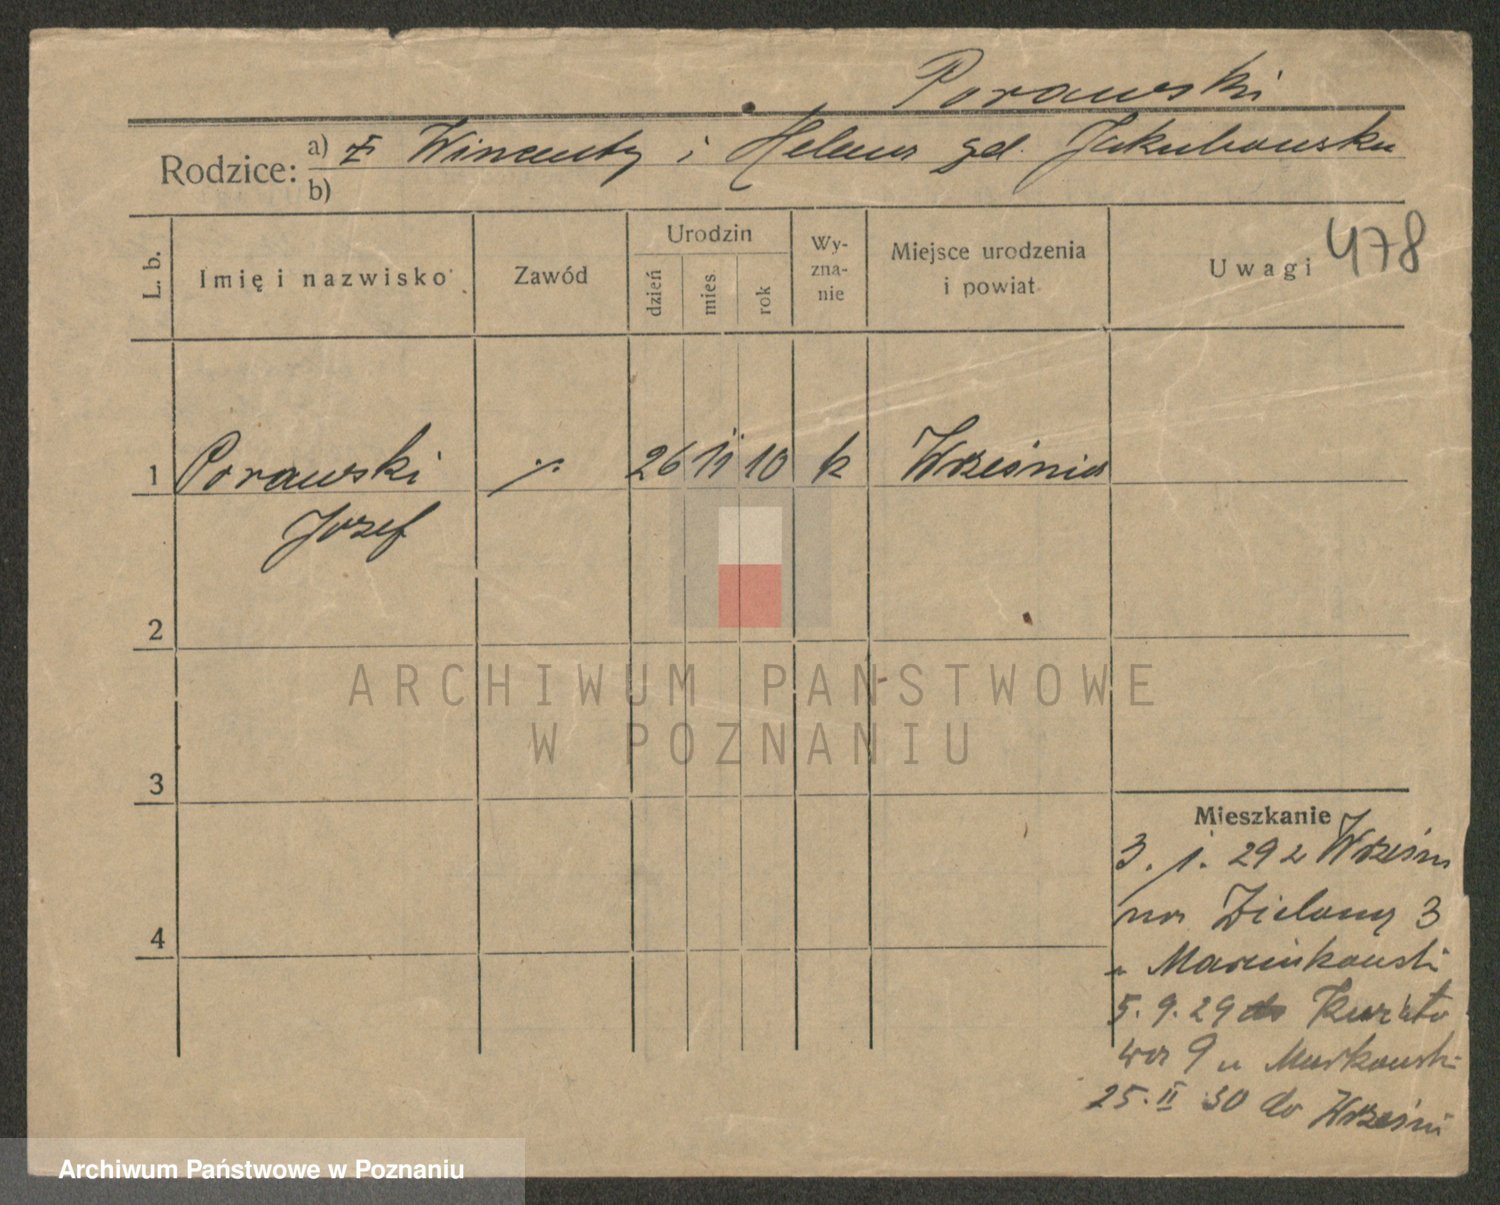 Porawski
Rodzice: a) z Wincenty i Helena zd. Jakubowska
b)
L. b.
Imię i nazwisko
Zawód
Urodzin
dzień
mies
rok
Wy-
zna-
nie
Miejsce urodzenia
i powiat
Uwagi
478
1 Porawski 26 11 10 k Września
Józef
2
ARCHIWUM PAŃSTWOWE
W POZNANIU
3
Mieszkanie
3. 1. 29 z Wrześni
na Zielony 3
u Marcinkowski
5. 9. 29 do
9 u
4
25. II 30 do Wrześni
Archiwum Państwowe w Poznaniu